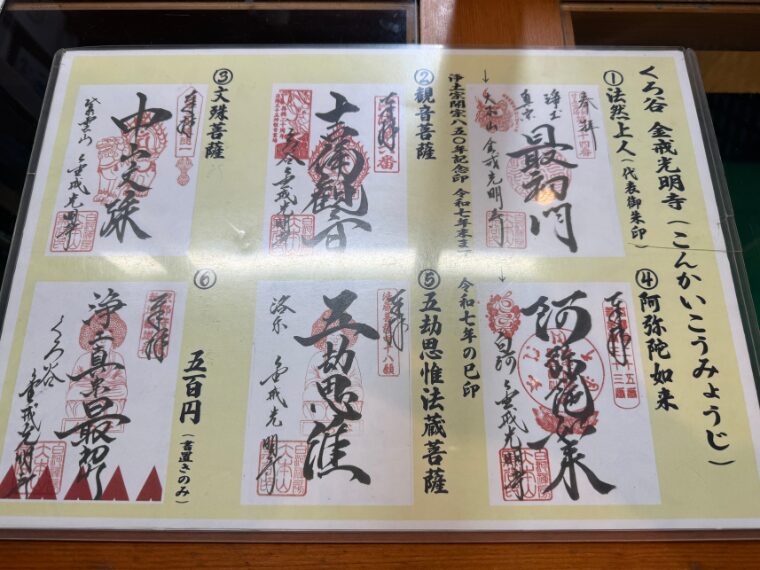 くろ谷 金戒光明寺（こんかいこうみょうじ）
①法然上人（代表御朱印）
奉拝
浄土
真宗
最初門
大本山 金戒光明寺
浄土宗開宗八五〇年記念印 令和七年末まで
②観音菩薩
奉拝
金戒光明寺
③文殊菩薩
奉拝
中山文殊
金戒光明寺
④阿弥陀如来
奉拝
阿弥陀如来
金戒光明寺
令和七年の巳印
⑤五劫思惟法蔵菩薩
奉拝
五劫思惟
洛東
金戒光明寺
⑥
五百円（書置きのみ）
奉拝
浄土真宗最初門
くろ谷
金戒光明寺